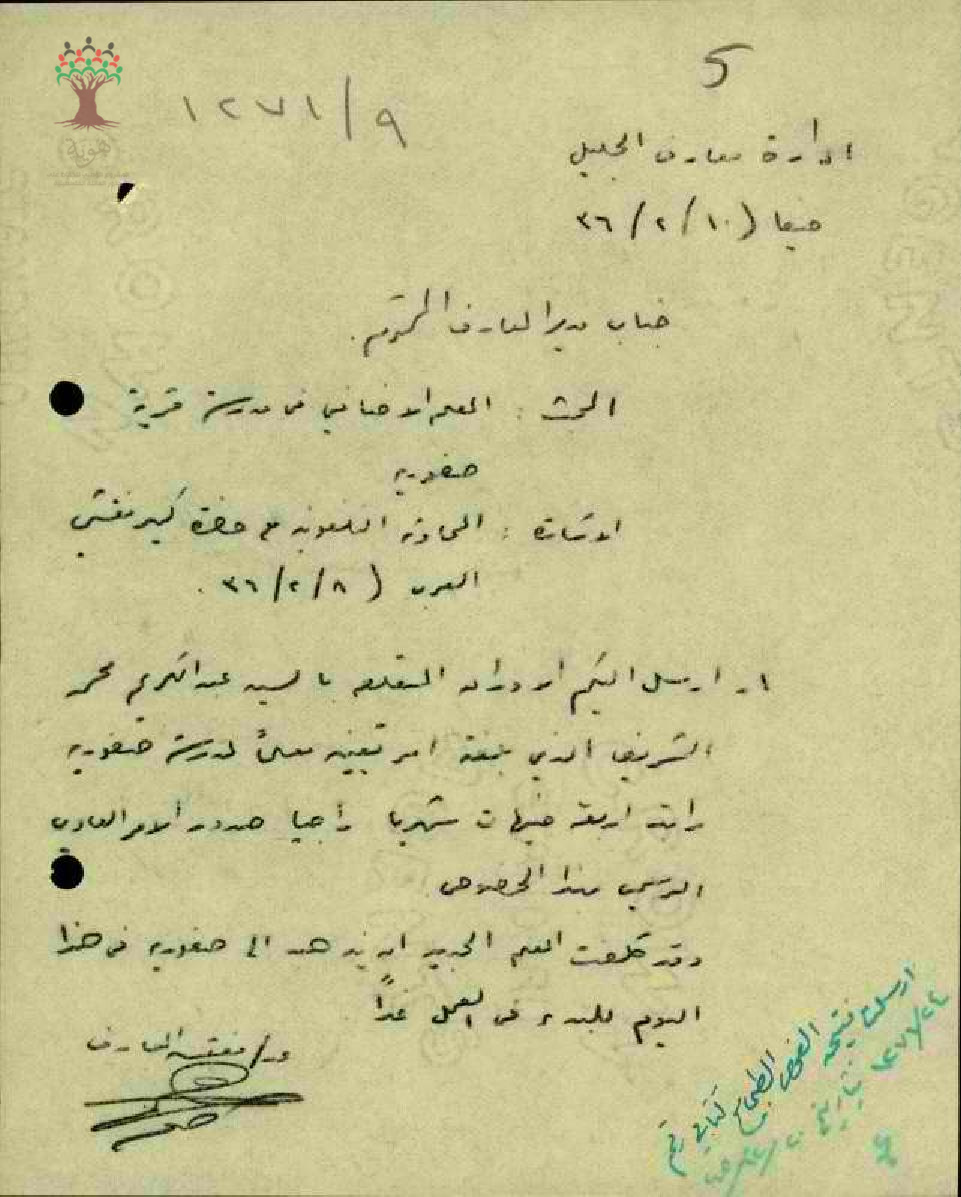 5
١٢٧١/٩
هوية
ادارة معارف الجليل
حيفا (١٠/٢/٣٦
جناب مدير المعارف المحترم.
البحث : المعلم الاضافي في مدرسة قرية
صفوريه
الاشارة : المحادثة التلفونية مع حضرة كبير مفتشي
العرب (٨/٢/٣٦.
١- ارسل اليكم اوراق المتعلقة بالسيد عبد الكريم محمد
الشريف الذي بلغته امر تعيينه معلماً لمدرسة صفوريه
راتبه اربعة جنيهات شهريا راجيا صدور الامر العادي
الرسمي بهذا الخصوص
وقد كلفت المعلم الجديد ان يذهب الى صفوريه في هذا
اليوم للبدء في العمل غداً.
عن/ مفتش المعارف
ارسلت نتيجة الفحص الطبي كتابي رقم
١٢٧١/٢٢ بتاريخ